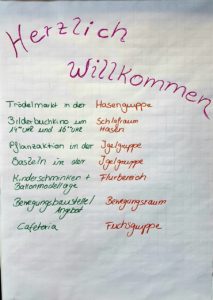 Herzlich
Willkommen
Trödelmarkt in der Hasengruppe
Bilderbuchkino um Schlafraum
14⁰⁰ Uhr und 16⁰⁰ Uhr Hasen
Pflanzaktion in der Igelgruppe
Basteln in der Igelgruppe
Kinderschminken + Flurbereich
Ballonmodellage
Bewegungsbaustelle/ Bewegungsraum
Angebot
Cafeteria Fuchsgruppe